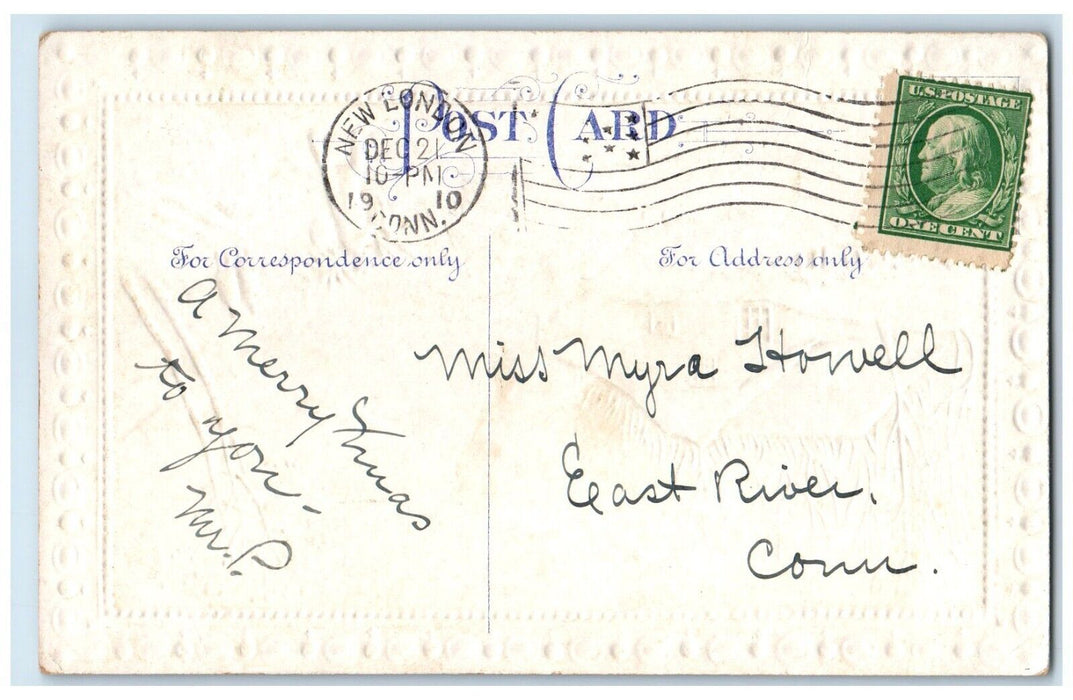 POST CARD
NEW LONDON
DEC 21
10 PM
19 10
CONN.
U.S. POSTAGE
ONE CENT
For Correspondence only
For Address only
A Merry Xmas
to you -
M.P.
Miss Myra Howell
East River.
Conn.